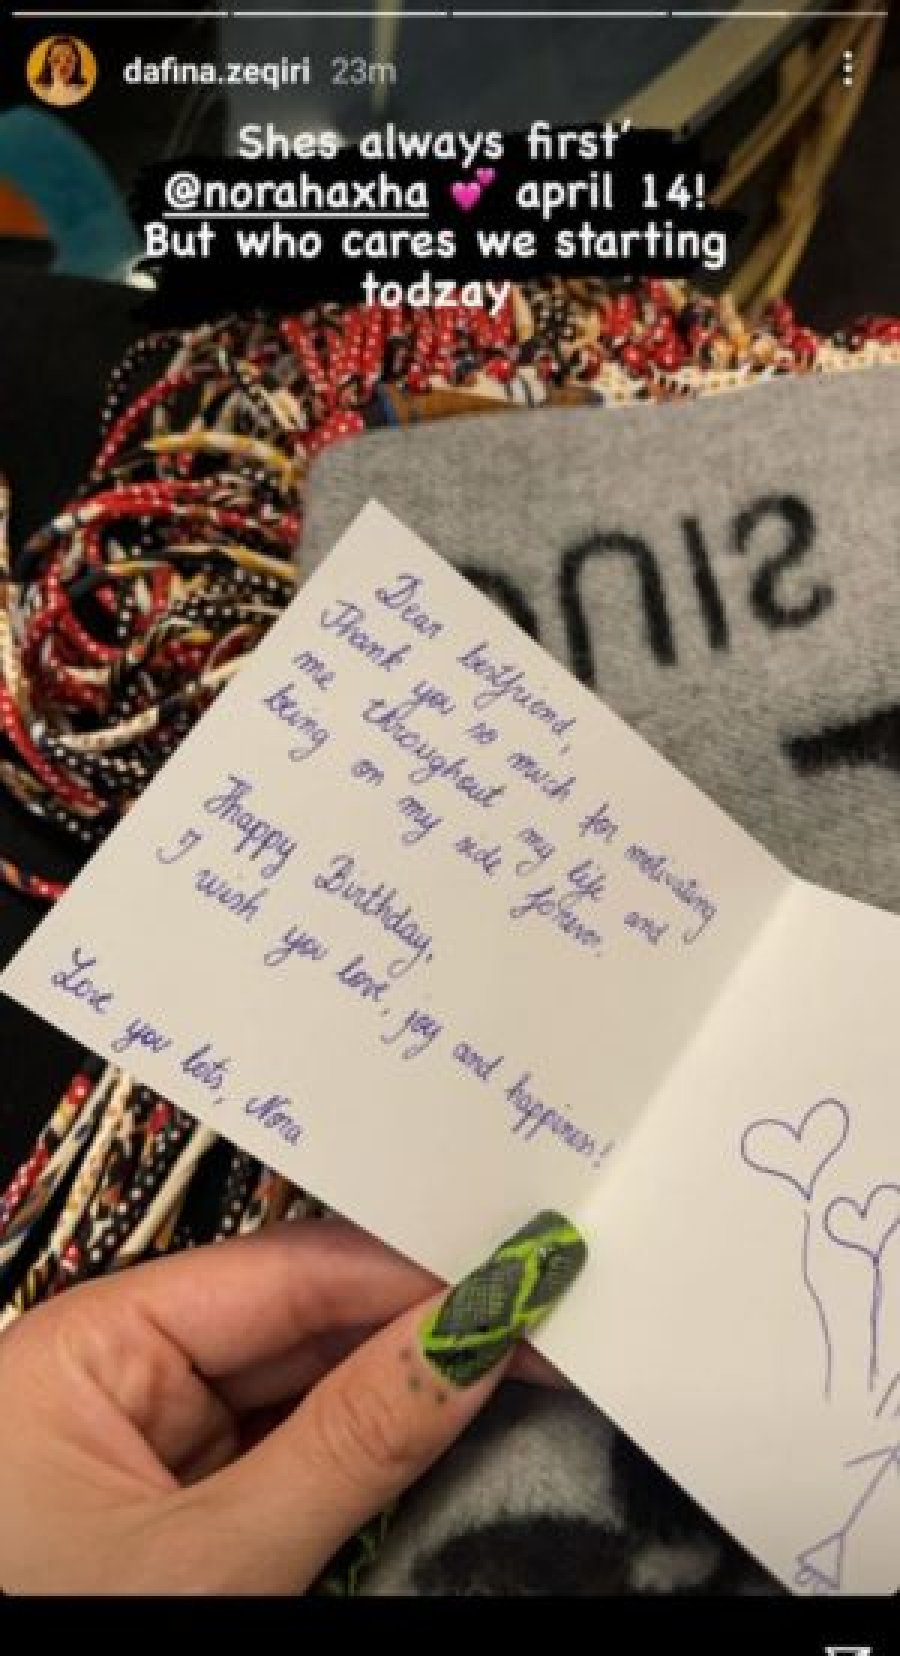 dafina.zeqiri 23m
Shes always first’
@norahaxha 💕 april 14!
But who cares we starting
todzay
Dear bestfriend,
Thank you so much for motivating
me throughout my life and
being on my side forever.
Happy Birthday,
I wish you love, joy and happiness!
Love you lots, Nora